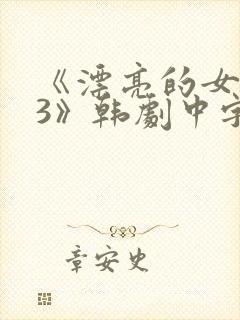 《漂亮的女
3》韩剧中字
章安史